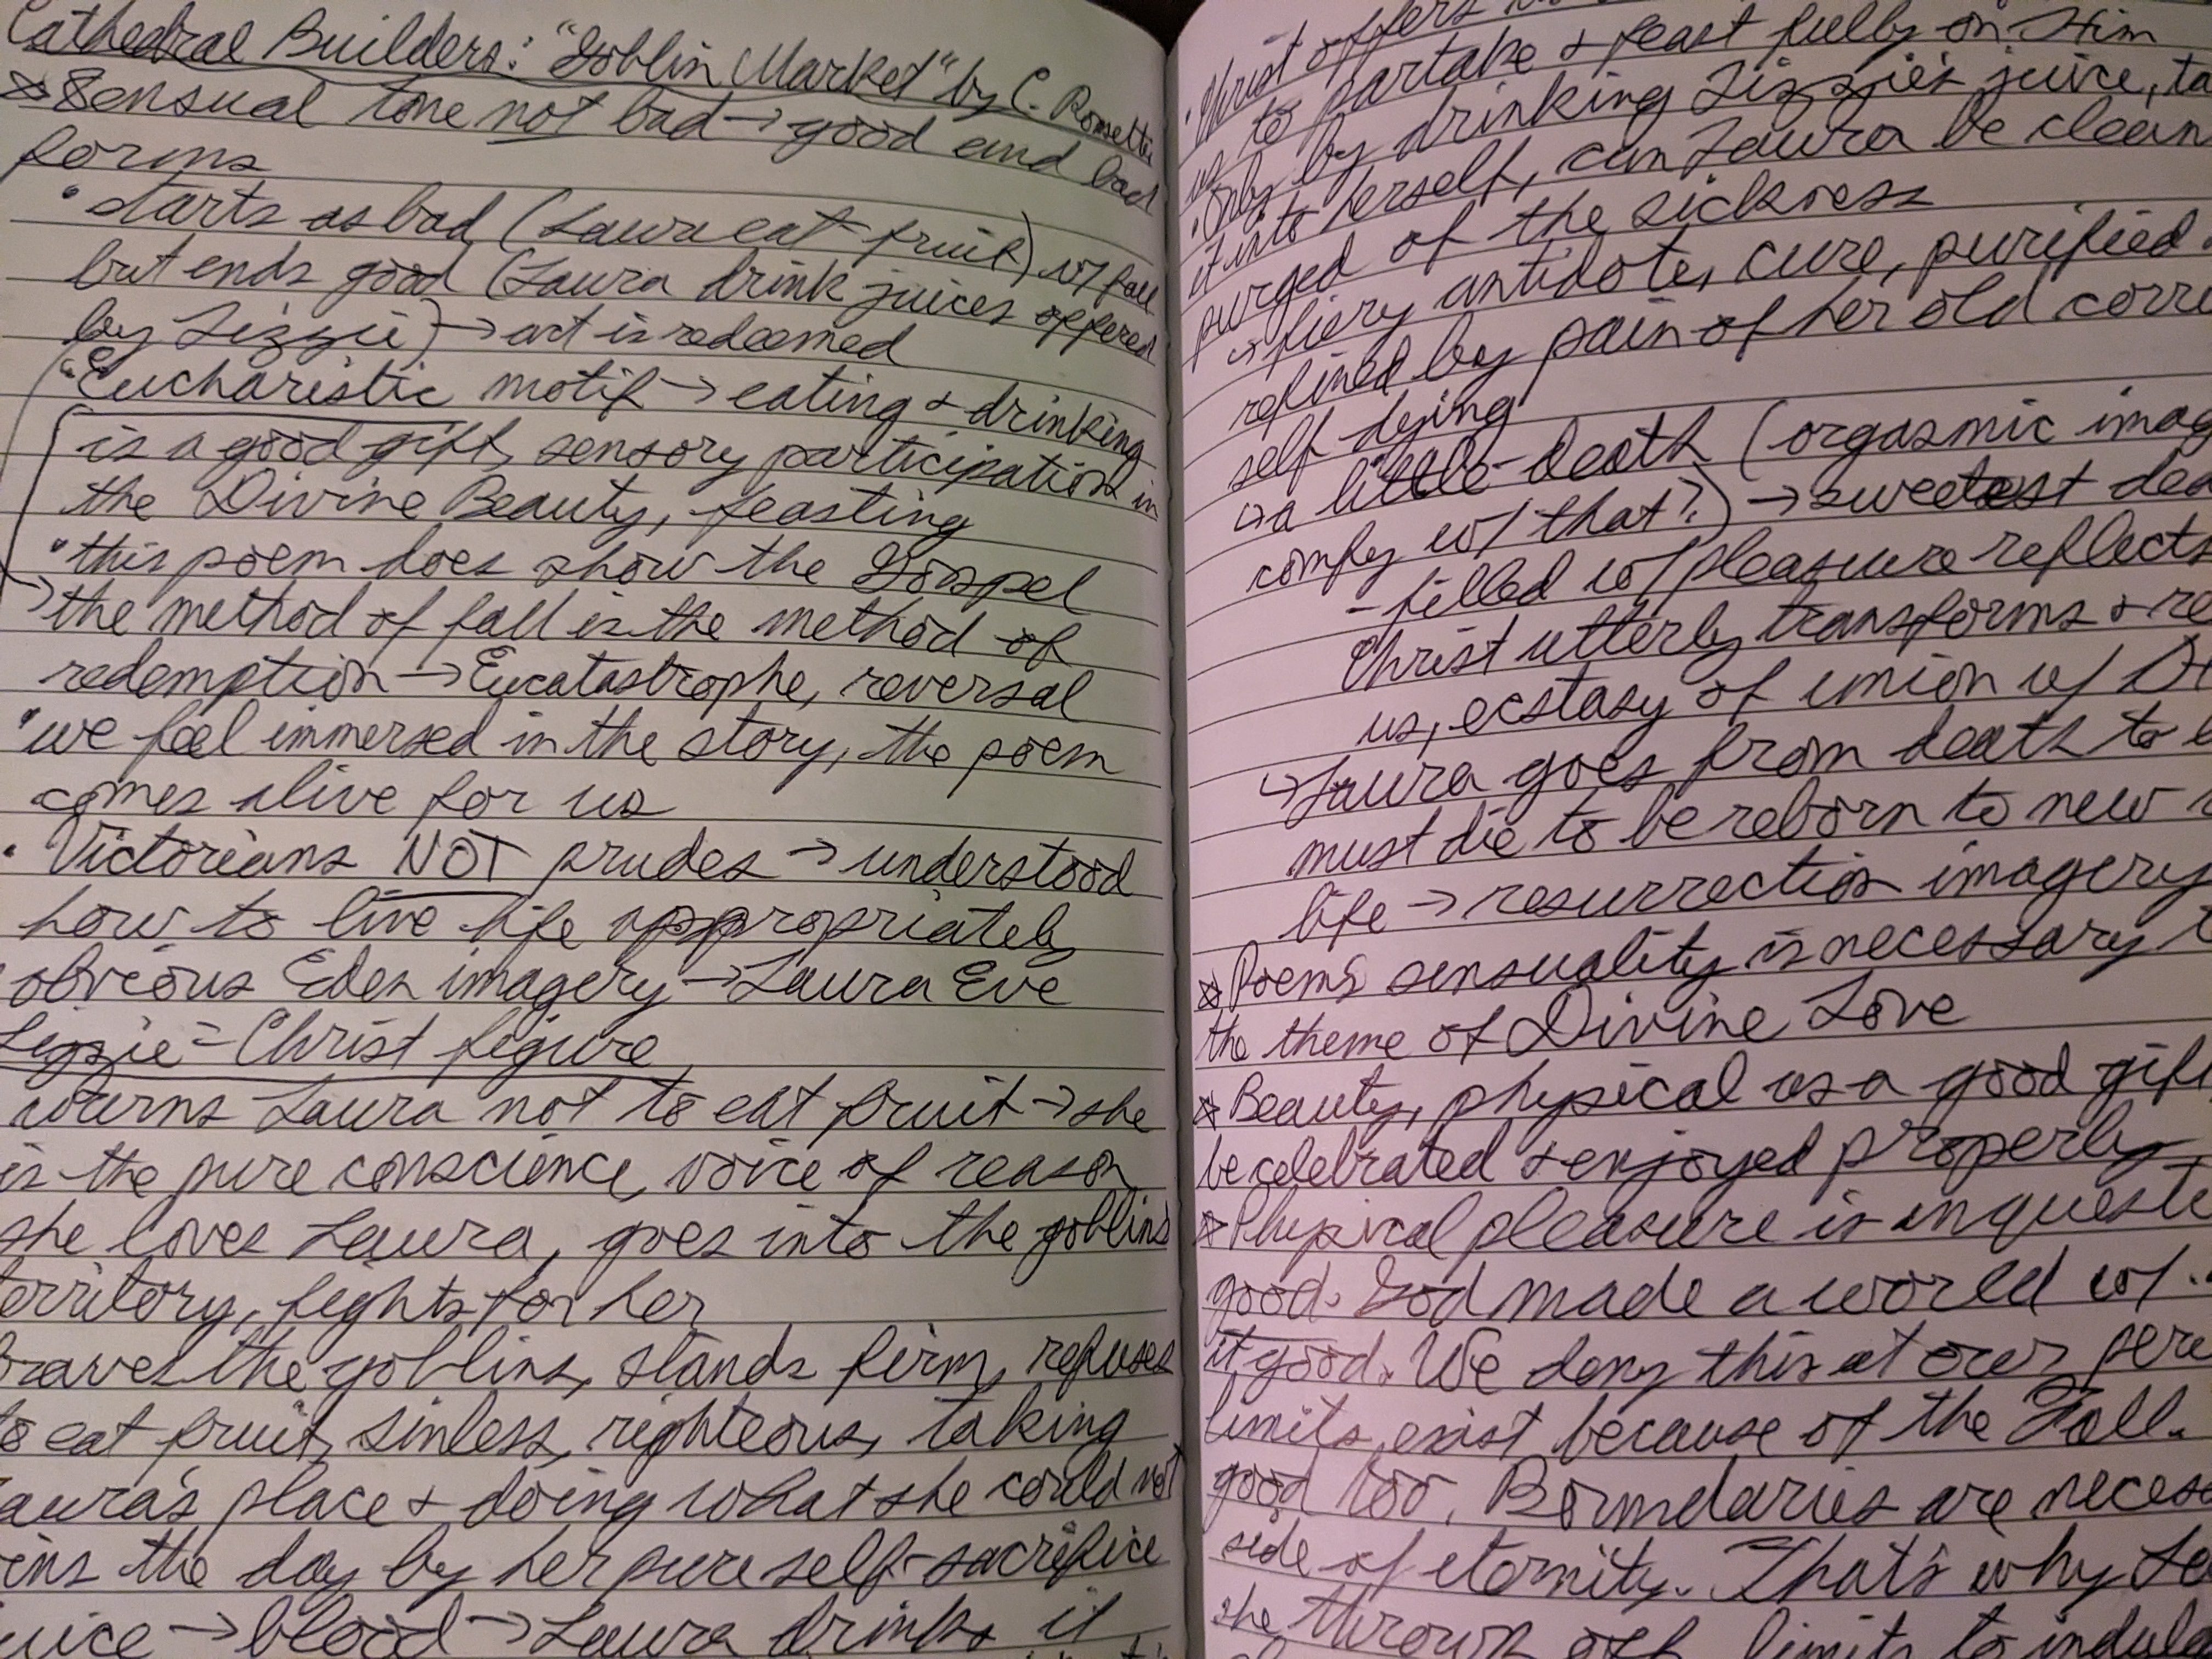 Cathedral Builders: "Goblin Market" by C. Rossetti
Sensual tone not bad → good and bad
forms
• starts as bad (Laura eat fruit) w/ fall
but ends good (Laura drink juices offered
by Lizzie) → act is redeemed
• Eucharistic motif → eating & drinking
is a good gift, sensory participation in
the Divine Beauty, feasting
• this poem does show the Gospel
→ the method of fall is the method of
redemption → Eucatastrophe, reversal
• we feel immersed in the story, the poem
comes alive for us
• Victorians NOT prudes → understood
how to live life appropriately
obvious Eden imagery → Laura Eve
Lizzie = Christ figure
warns Laura not to eat fruit → she
is the pure conscience, voice of reason
she loves Laura, goes into the goblins
territory, fights for her
braves the goblins, stands firm, refuses
to eat fruit, sinless, righteous, taking
aura's place & doing what she could not
ins the day by her pure self-sacrifice
uice → blood → Laura drinks it
• Christ offers
us to partake & feast fully on Him
• Only by drinking Lizzie's juice, ta
it into herself, can Laura be clean
purged of the sickness
→ fiery antidote, cure, purified
refined by pain of her old corr
self dying
↳ a little-death (orgasmic imag
comfy w/ that?) → sweetest dea
- filled w/ pleasure reflects
Christ utterly transforms & re
us, ecstasy of union w/
↳ Laura goes from death to
must die to be reborn to new
life → resurrection imagery
Poems sensuality is necessary t
the theme of Divine Love
Beauty, physical as a good gift
be celebrated & enjoyed properly
Physical pleasure is inqueste
good. God made a world w/
it good. We deny this at our pere
limits exist because of the Fall.
good too. Boundaries are necess
side of eternity. That's why
she throws off limits to indul